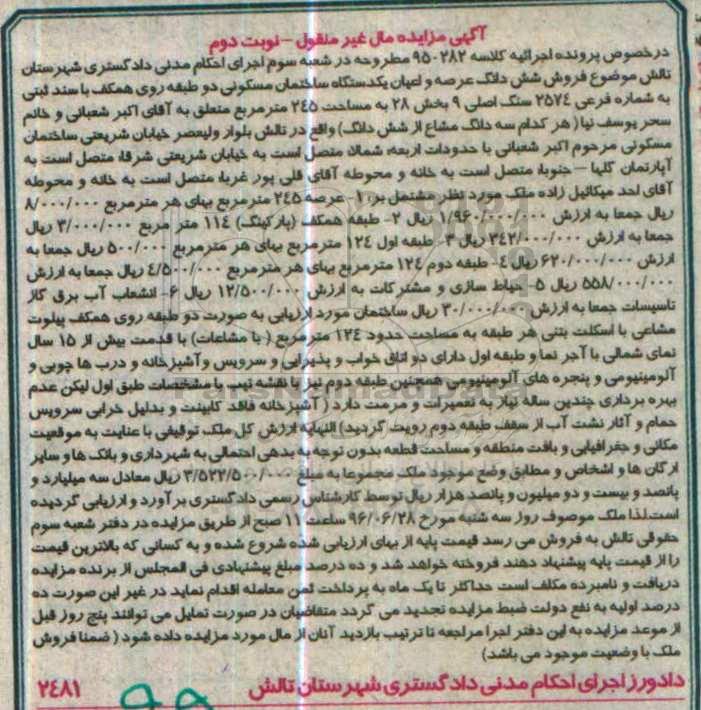 آگهی مزایده مال غیر منقول – نوبت دوم
درخصوص پرونده اجرائیه کلاسه ۹۵۰۲۸۲ مطروحه در شعبه سوم اجرای احکام مدنی دادگستری شهرستان
تالش موضوع فروش شش دانگ عرصه و اعیان یکدستگاه ساختمان مسکونی دو طبقه روی همکف با سند ثبتی
به شماره فرعی ۲۵۷۴ سنگ اصلی ۹ بخش ۲۸ به مساحت ۲۴۵ مترمربع متعلق به آقای اکبر شعبانی و خانم
سحر یوسف نیا( هر کدام سه دانگ مشاع از شش دانگ) واقع در تالش بلوار ولیعصر خیابان شریعتی ساختمان
مسکونی مرحوم اکبر شعبانی با حدودات اربعه، شمالا، متصل است به خیابان شریعتی شرقا، متصل است به
آپارتمان گلها – جنوبا، متصل است به خانه و محوطه آقای قلی پور غربا، متصل است به خانه و محوطه
آقای احد میکائیل زاده ملک مورد نظر مشتمل بر، ۱- عرصه ۲۴۵ مترمربع بهای هر مترمربع ۸/۰۰۰/۰۰۰
ریال جمعا به ارزش ۱/۹۶۰/۰۰۰/۰۰۰ ریال ۲- طبقه همکف (پارکینگ) ۱۱۴ متر مربع ۳/۰۰۰/۰۰۰ ریال
جمعا به ارزش ۳۴۲/۰۰۰/۰۰۰ ریال ۳- طبقه اول ۱۲۴ مترمربع بهای هر مترمربع ۵۰۰/۰۰۰ ریال جمعا به
ارزش ۶۲۰/۰۰۰/۰۰۰ ریال ۴- طبقه دوم ۱۲۴ مترمربع بهای هر مترمربع ۴/۵۰۰/۰۰۰ ریال جمعا به ارزش
۵۵۸/۰۰۰/۰۰۰ ریال ۵- حیاط سازی و مشترکات به ارزش ۱۲/۵۰۰/۰۰۰ ریال ۶- انشعاب آب برق گاز
تاسیسات جمعا به ارزش ۳۰/۰۰۰/۰۰۰ ریال ساختمان مورد ارزیابی به صورت دو طبقه روی همکف پیلوت
مشاعی با اسکلت بتنی هر طبقه به مساحت حدود ۱۲۴ مترمربع ( با مشاعات) با قدمت بیش از ۱۵ سال
نمای شمالی با آجر نما و طبقه اول دارای دو اتاق خواب و پذیرایی و سرویس و آشپزخانه و درب ها چوبی و
آلومینیومی و پنجره های آلومینیومی همچنین طبقه دوم نیز با نقشه تیپ با مشخصات طبق اول لیکن عدم
بهره برداری چندین ساله نیاز به تعمیرات و مرمت دارد ( آشپزخانه فاقد کابینت و بدلیل خرابی سرویس
حمام و آثار نشت آب از سقف طبقه دوم رویت گردید) النهایه ارزش کل ملک توقیفی با عنایت به موقعیت
مکانی و جغرافیایی و بافت منطقه و مساحت قطعه بدون توجه به بدهی احتمالی به شهرداری و بانک ها و سایر
ارگان ها و اشخاص و مطابق وضع موجود ملک مجموعا به مبلغ ۳/۵۲۲/۵۰۰/۰۰۰ ریال معادل سه میلیارد و
پانصد و بیست و دو میلیون و پانصد هزار ریال توسط کارشناس رسمی دادگستری برآورد و ارزیابی گردیده
است.لذا ملک موصوف روز سه شنبه مورخ ۹۶/۰۶/۲۸ ساعت ۱۱ صبح از طریق مزایده در دفتر شعبه سوم
حقوقی تالش به فروش می رسد قیمت پایه از بهای ارزیابی شده شروع شده و به کسانی که بالاترین قیمت
را از قیمت پایه پیشنهاد دهند فروخته خواهد شد و ده درصد مبلغ پیشنهادی فی المجلس از برنده مزایده
دریافت و نامبرده مکلف است حداکثر تا یک ماه به پرداخت ثمن معامله اقدام نماید در غیر این صورت ده
درصد اولیه به نفع دولت ضبط مزایده تجدید می گردد متقاضیان در صورت تمایل می توانند پنج روز قبل
از موعد مزایده به این دفتر اجرا مراجعه تا ترتیب بازدید آنان از مال مورد مزایده داده شود ( ضمنا فروش
ملک با وضعیت موجود می باشد)
دادورز اجرای احکام مدنی دادگستری شهرستان تالش ۲۴۸۱